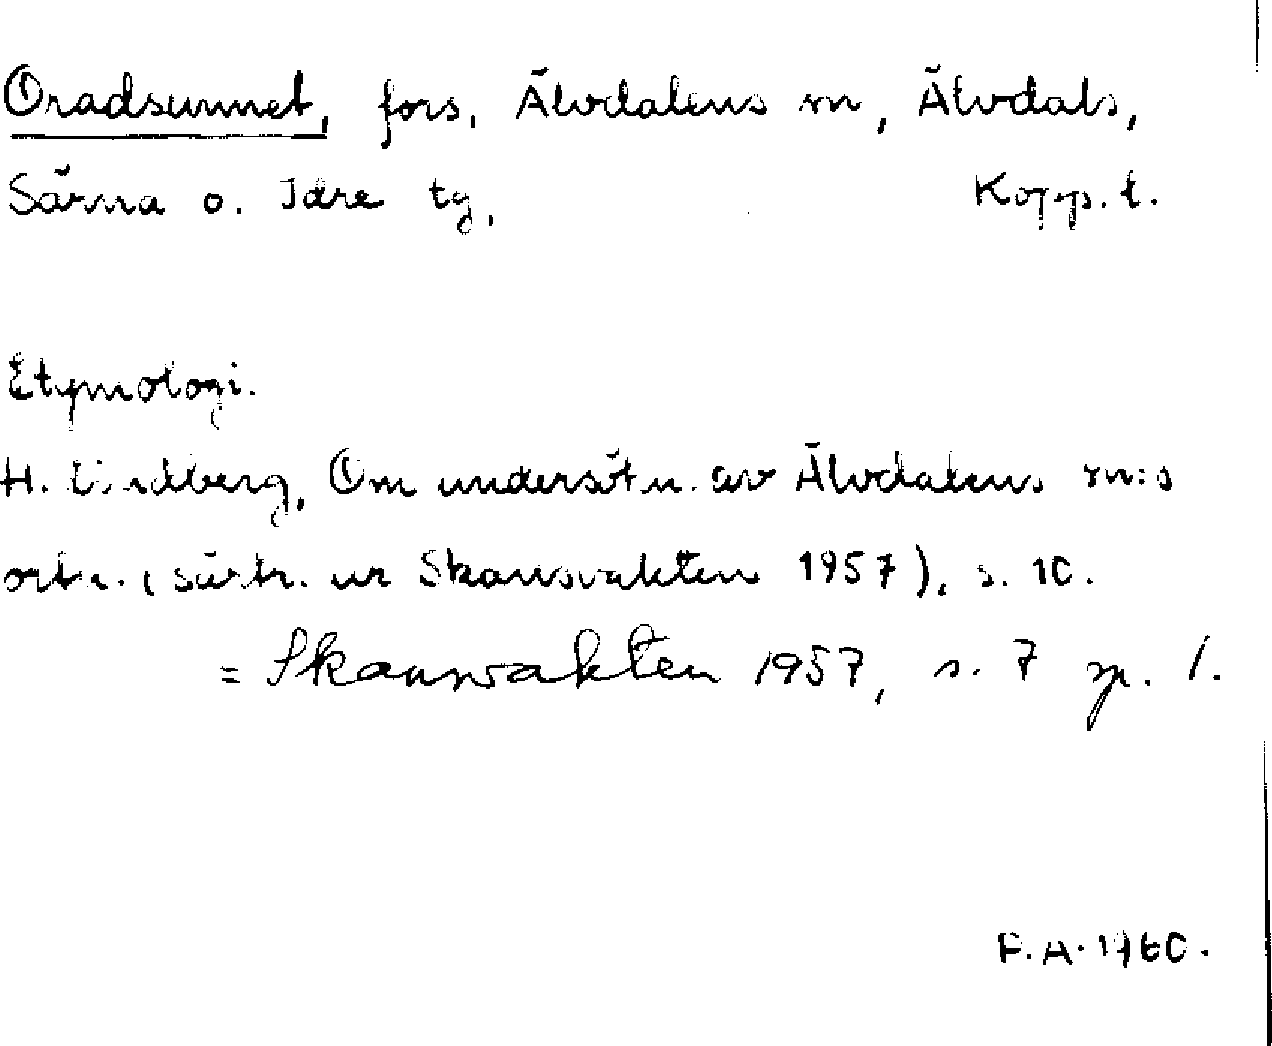 Oradsunnet, fors, Älvdalens sn, Älvdals,
Särna o. Idre tg, Kopp. l.
Etymologi.
H. Lindberg, Om undersökn. av Älvdalens sn:s
ortn. (särtr. ur Skansvakten 1957), s. 10.
= Skansvakten 1957, s. 7 sp. 1.
F.A. 1960.